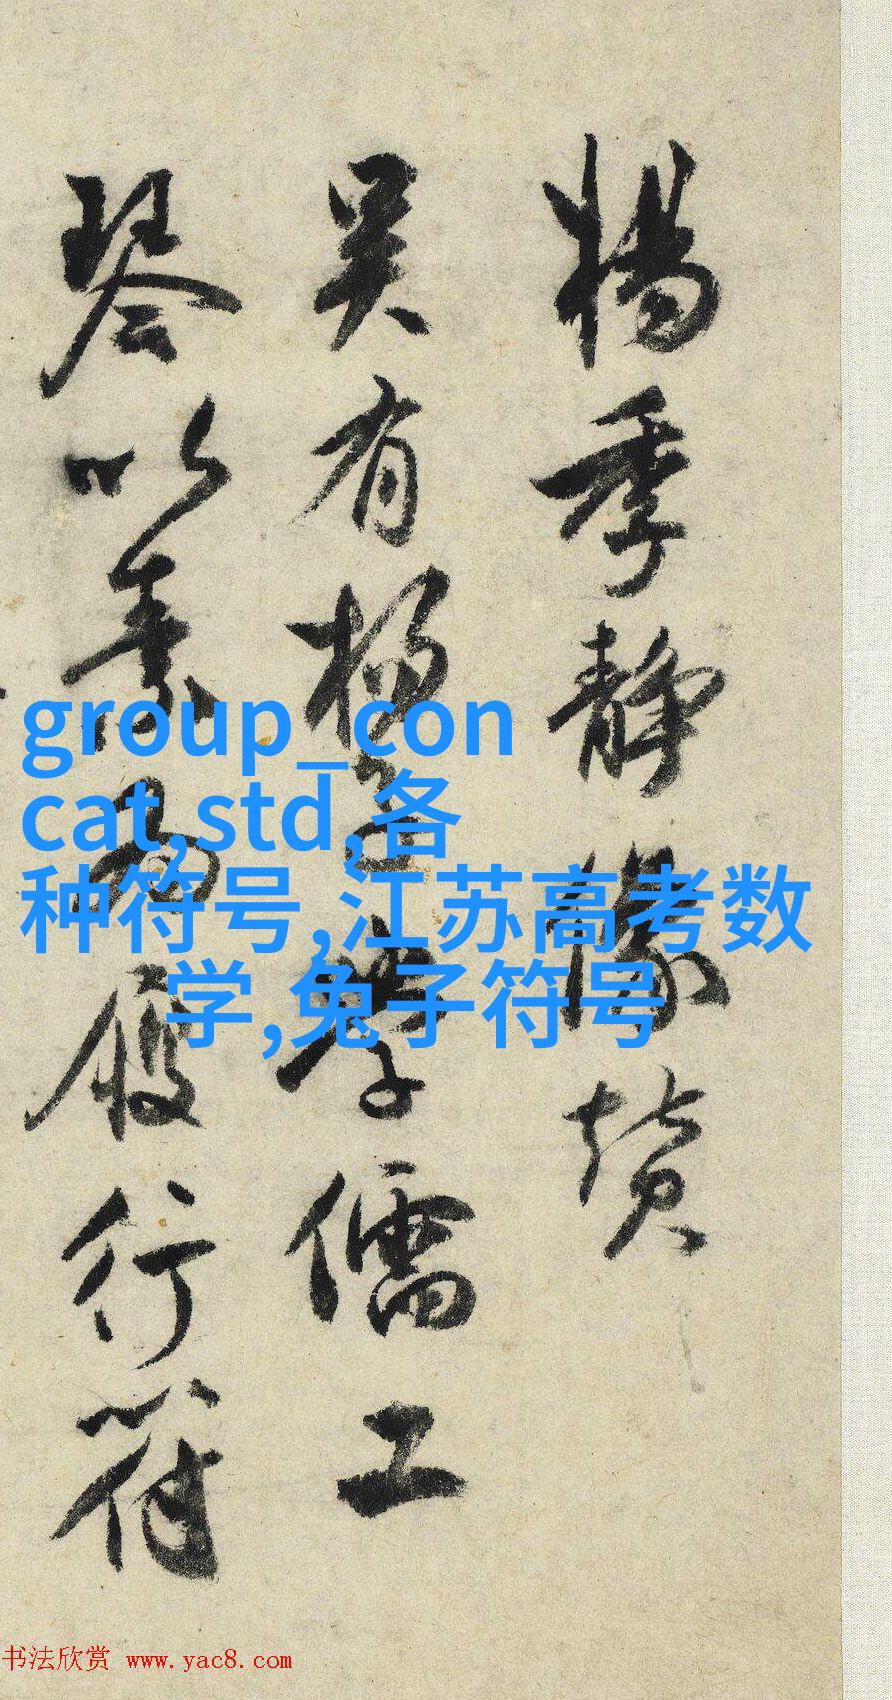 楊季静像贊
吴有楊子學儒工
琴以素為履行符
group_con
cat,std,各
种符号,江苏高考数
学,兔子符号
书法欣赏 www.yac8.com